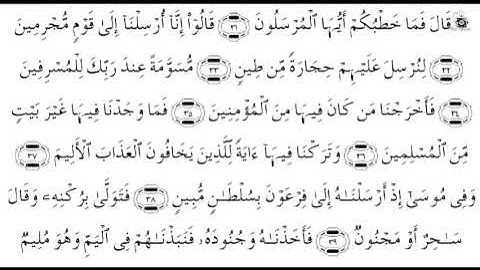 قَالَ فَمَا خَطْبُكُمْ أَيُّهَا ٱلْمُرْسَلُونَ ٣١ قَالُوٓا۟ إِنَّآ أُرْسِلْنَآ إِلَىٰ قَوْمٍ مُّجْرِمِينَ
٣٢ لِنُرْسِلَ عَلَيْهِمْ حِجَارَةً مِّن طِينٍ ٣٣ مُّسَوَّمَةً عِندَ رَبِّكَ لِلْمُسْرِفِينَ
٣٤ فَأَخْرَجْنَا مَن كَانَ فِيهَا مِنَ ٱلْمُؤْمِنِينَ ٣٥ فَمَا وَجَدْنَا فِيهَا غَيْرَ بَيْتٍ
مِّنَ ٱلْمُسْلِمِينَ ٣٦ وَتَرَكْنَا فِيهَآ ءَايَةً لِّلَّذِينَ يَخَافُونَ ٱلْعَذَابَ ٱلْأَلِيمَ ٣٧
وَفِى مُوسَىٰٓ إِذْ أَرْسَلْنَـٰهُ إِلَىٰ فِرْعَوْنَ بِسُلْطَـٰنٍ مُّبِينٍ ٣٨ فَتَوَلَّىٰ بِرُكْنِهِۦ وَقَالَ
سَـٰحِرٌ أَوْ مَجْنُونٌ ٣٩ فَأَخَذْنَـٰهُ وَجُنُودَهُۥ فَنَبَذْنَـٰهُمْ فِى ٱلْيَمِّ وَهُوَ مُلِيمٌ